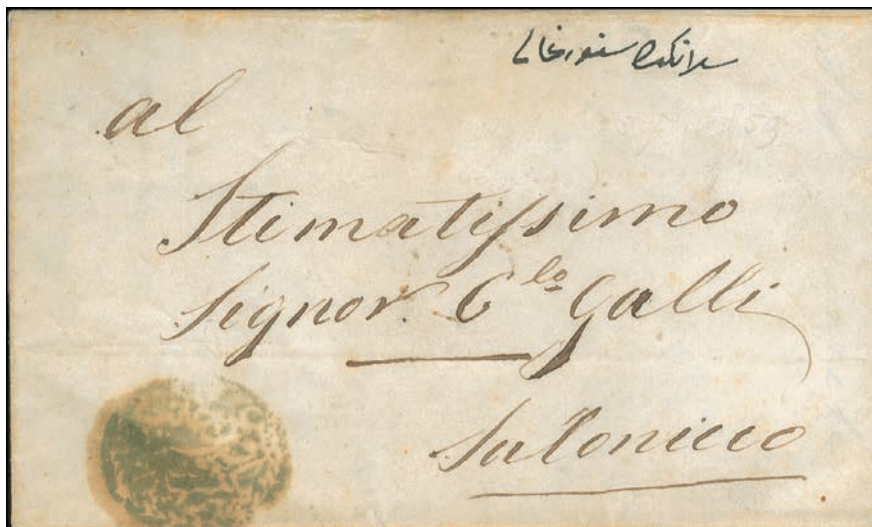 al
Stimatissimo
Signor C.lo Galli
Salonicco